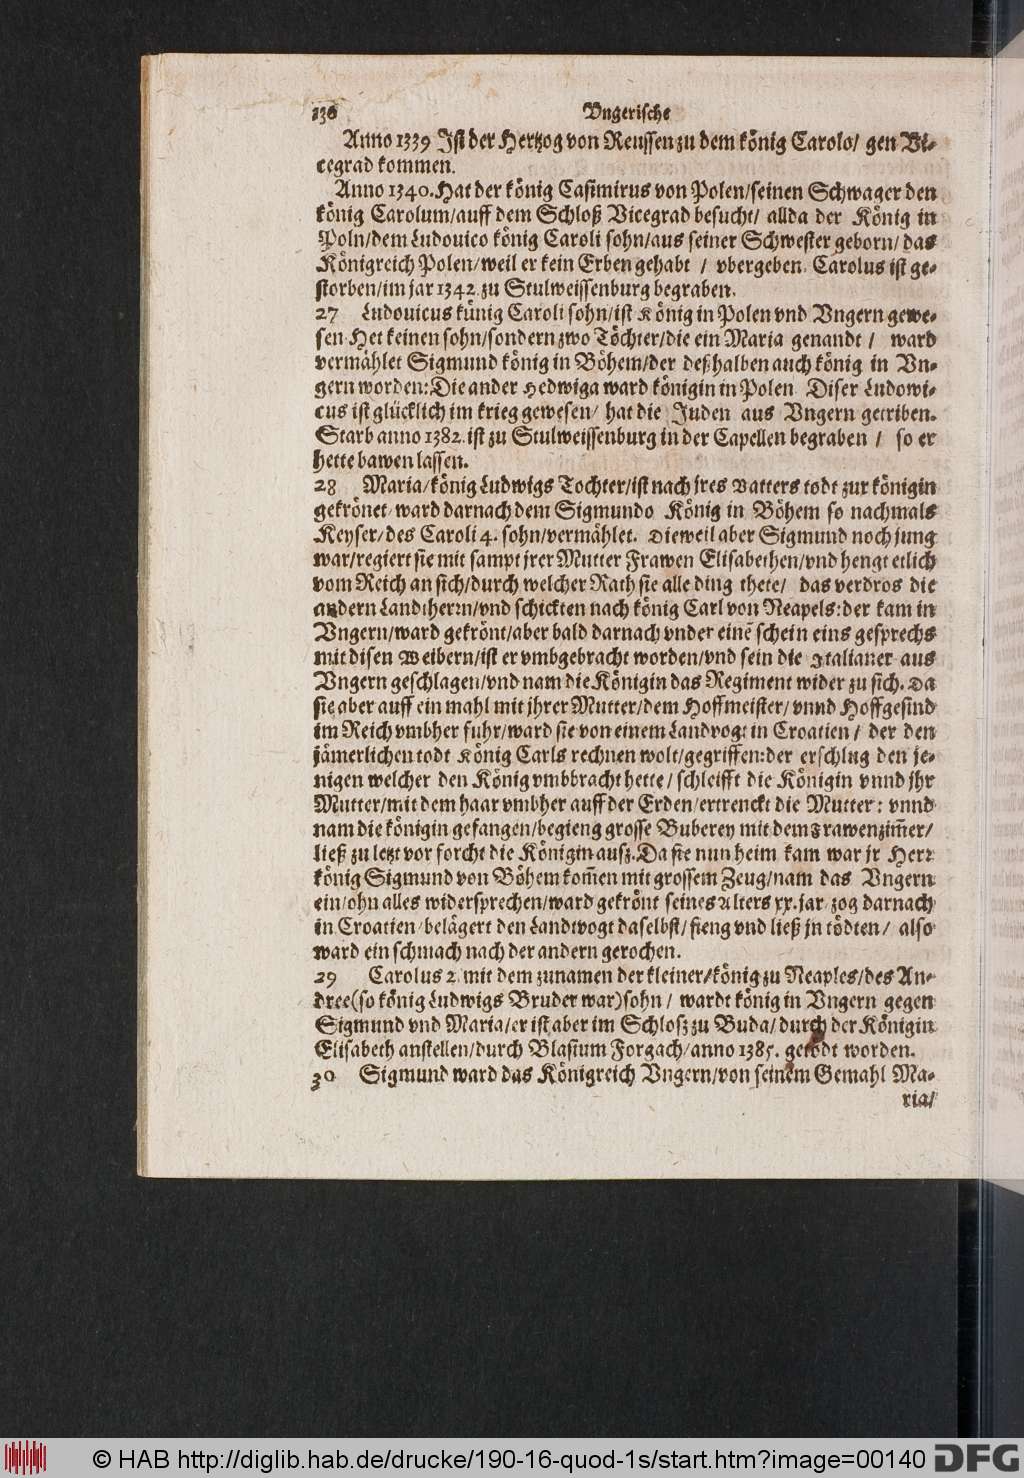 136 Vngerische
Anno 1339 Ist der Hertzog von Reussen zu dem könig Carolo/ gen Vi-
cegrad kommen.
Anno 1340. Hat der könig Casimirus von Polen/seinen Schwager den
könig Carolum/auff dem Schloß Vicegrad besucht/ allda der König in
Poln/dem Ludouico könig Caroli sohn/aus seiner Schwester geborn/ das
Königreich Polen/weil er kein Erben gehabt / vbergeben. Carolus ist ge-
storben/im jar 1342. zu Stulweissenburg begraben.
27 Ludouicus künig Caroli sohn/ist König in Polen vnd Vngern gewe-
sen. Het keinen sohn/sondern zwo Töchter/die ein Maria genandt / ward
vermählet Sigmund könig in Böhem/der deßhalben auch könig in Vn-
gern worden: Die ander Hedwiga ward königin in Polen Diser Ludowi-
cus ist glücklich im krieg gewesen/ hat die Juden aus Vngern getriben.
Starb anno 1382. ist zu Stulweissenburg in der Capellen begraben / so er
hette bawen lassen.
28 Maria/könig Ludwigs Tochter/ist nach jres Vatters todt zur königin
gekrönet/ ward darnach dem Sigmundo König in Böhem so nachmals
Keyser/des Caroli 4. sohn/vermählet. Dieweil aber Sigmund noch jung
war/regiert sie mit sampt jrer Mutter Frawen Elisabethen/vnd hengt etlich
vom Reich an sich/durch welcher Rath sie alle ding thete/ das verdros die
andern Landtherrn/vnd schickten nach könig Carl von Neapels: der kam in
Vngern/ward gekrönt/aber bald darnach vnder einē schein eins gesprechs
mit disen Weibern/ist er vmbgebracht worden/vnd sein die Italianer aus
Vngern geschlagen/vnd nam die Königin das Regiment wider zu sich. Da
sie aber auff ein mahl mit jhrer Mutter/dem Hoffmeister/vnnd Hoffgesind
im Reich vmbher fuhr/ward sie von einem Landvogt in Croatien / der den
jämerlichen todt König Carls rechnen wolt/gegriffen: der erschlug den je-
nigen welcher den König vmbbracht hette/ schleifft die Königin vnnd jhr
Mutter/mit dem haar vmbher auff der Erden/ertrenckt die Mutter: vnnd
nam die königin gefangen/begieng grosse Buberey mit dem Frawenzim̄er/
ließ zu letzt vor forcht die Königin ausz. Da sie nun heim kam war jr Herr
könig Sigmund von Böhem kom̄en mit grossem Zeug/nam das Vngern
ein/ohn alles widersprechen/ward gekrönt seines Alters xx. jar/ zog darnach
in Croatien/belägert den Landtvogt daselbst/ fieng vnd ließ jn tödten/ also
ward ein schmach nach der andern gerochen.
29 Carolus 2. mit dem zunamen der kleiner/könig zu Neaples/des An-
dree(so könig Ludwigs Bruder war)sohn / wardt könig in Vngern gegen
Sigmund vnd Maria/er ist aber im Schlosz zu Buda/durch der Königin
Elisabeth anstellen/durch Blasium Forgach/anno 1385. getödt worden.
30 Sigmund ward das Königreich Vngern/von seinem Gemahl Ma-
ria/
© HAB http://diglib.hab.de/drucke/190-16-quod-1s/start.htm?image=00140 DFG